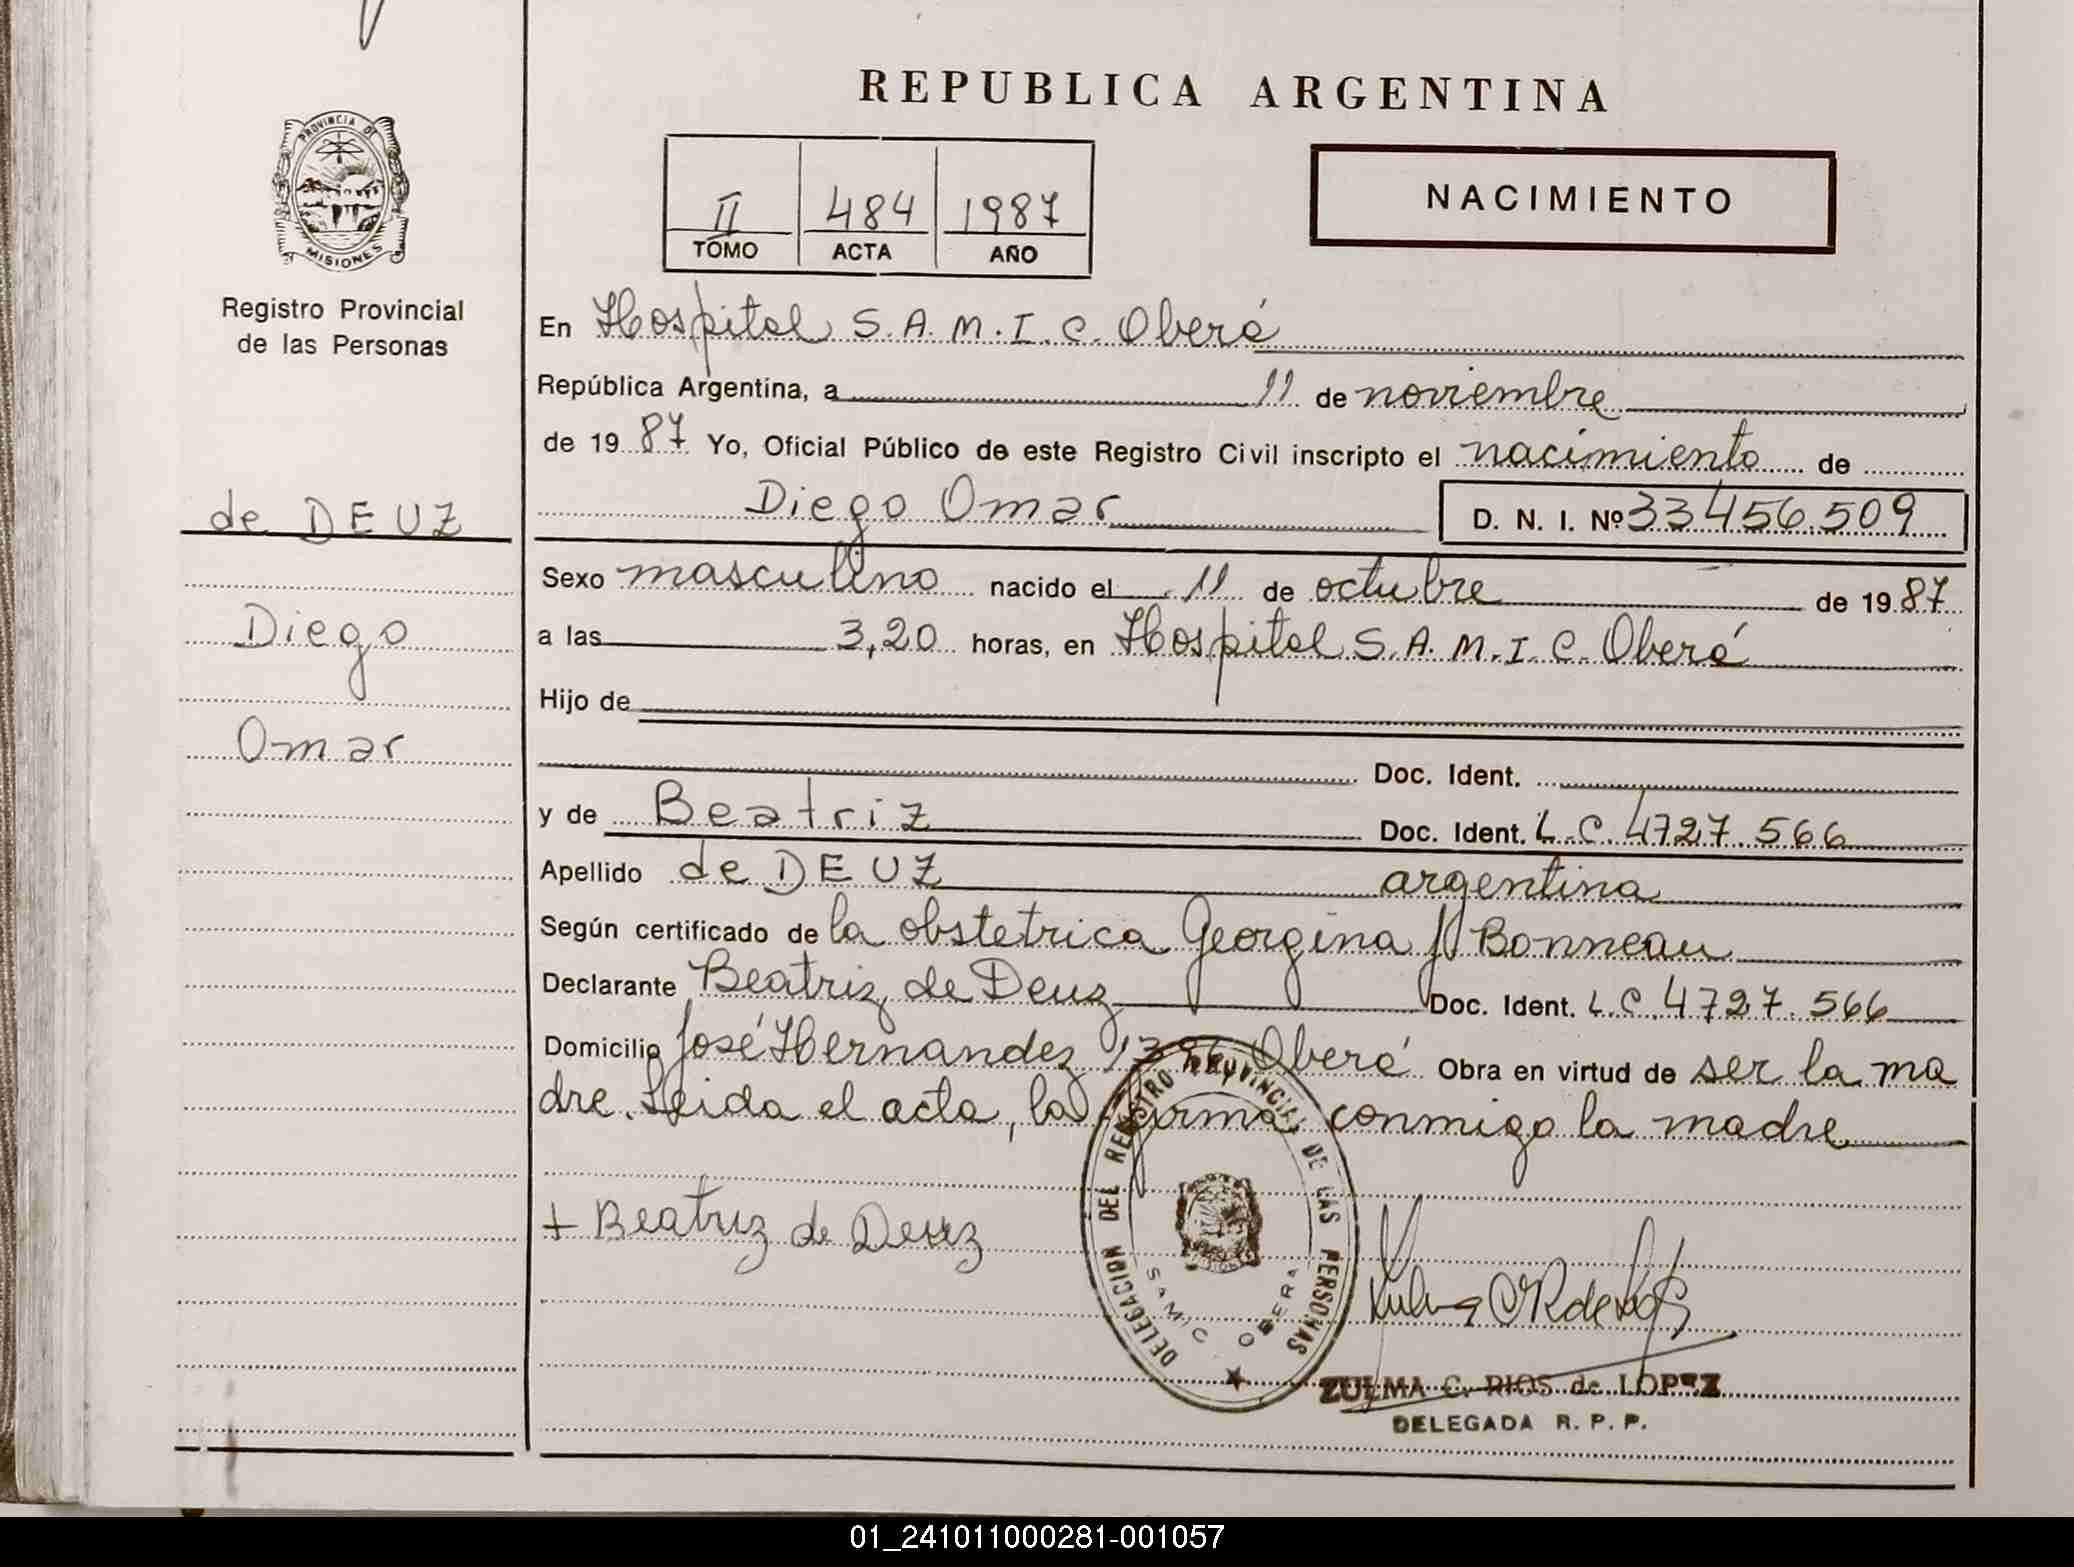 REPUBLICA ARGENTINA
PROVINCIA DE
MISIONES
Registro Provincial
de las Personas
II 484 1987
TOMO ACTA AÑO
NACIMIENTO
En Hospital S.A.M.I.C. Oberá
República Argentina, a 11 de noviembre
de 19 87 Yo, Oficial Público de este Registro Civil inscripto el nacimiento de
Diego Omar D. N. I. Nº 33456.509
de DEUZ
Diego
Omar
Sexo masculino nacido el 11 de octubre de 19 87
a las 3,20 horas, en Hospital S.A.M.I.C. Oberá
Hijo de
Doc. Ident.
y de Beatriz Doc. Ident. L.C. 4727.566
Apellido de DEUZ argentina
Según certificado de la obstetrica Georgina Bonneau
Declarante Beatriz de Deuz Doc. Ident. L.C. 4727.566
Domicilio José Hernandez Oberá Obra en virtud de ser la ma
dre. Leida el acta, la firma conmigo la madre
+ Beatriz de Deuz
DELEGACION DEL REGISTRO PROVINCIAL DE LAS PERSONAS
SAMIC OBERA
ZULMA C. RIOS de LOPEZ
DELEGADA R. P. P.
01_241011000281-001057